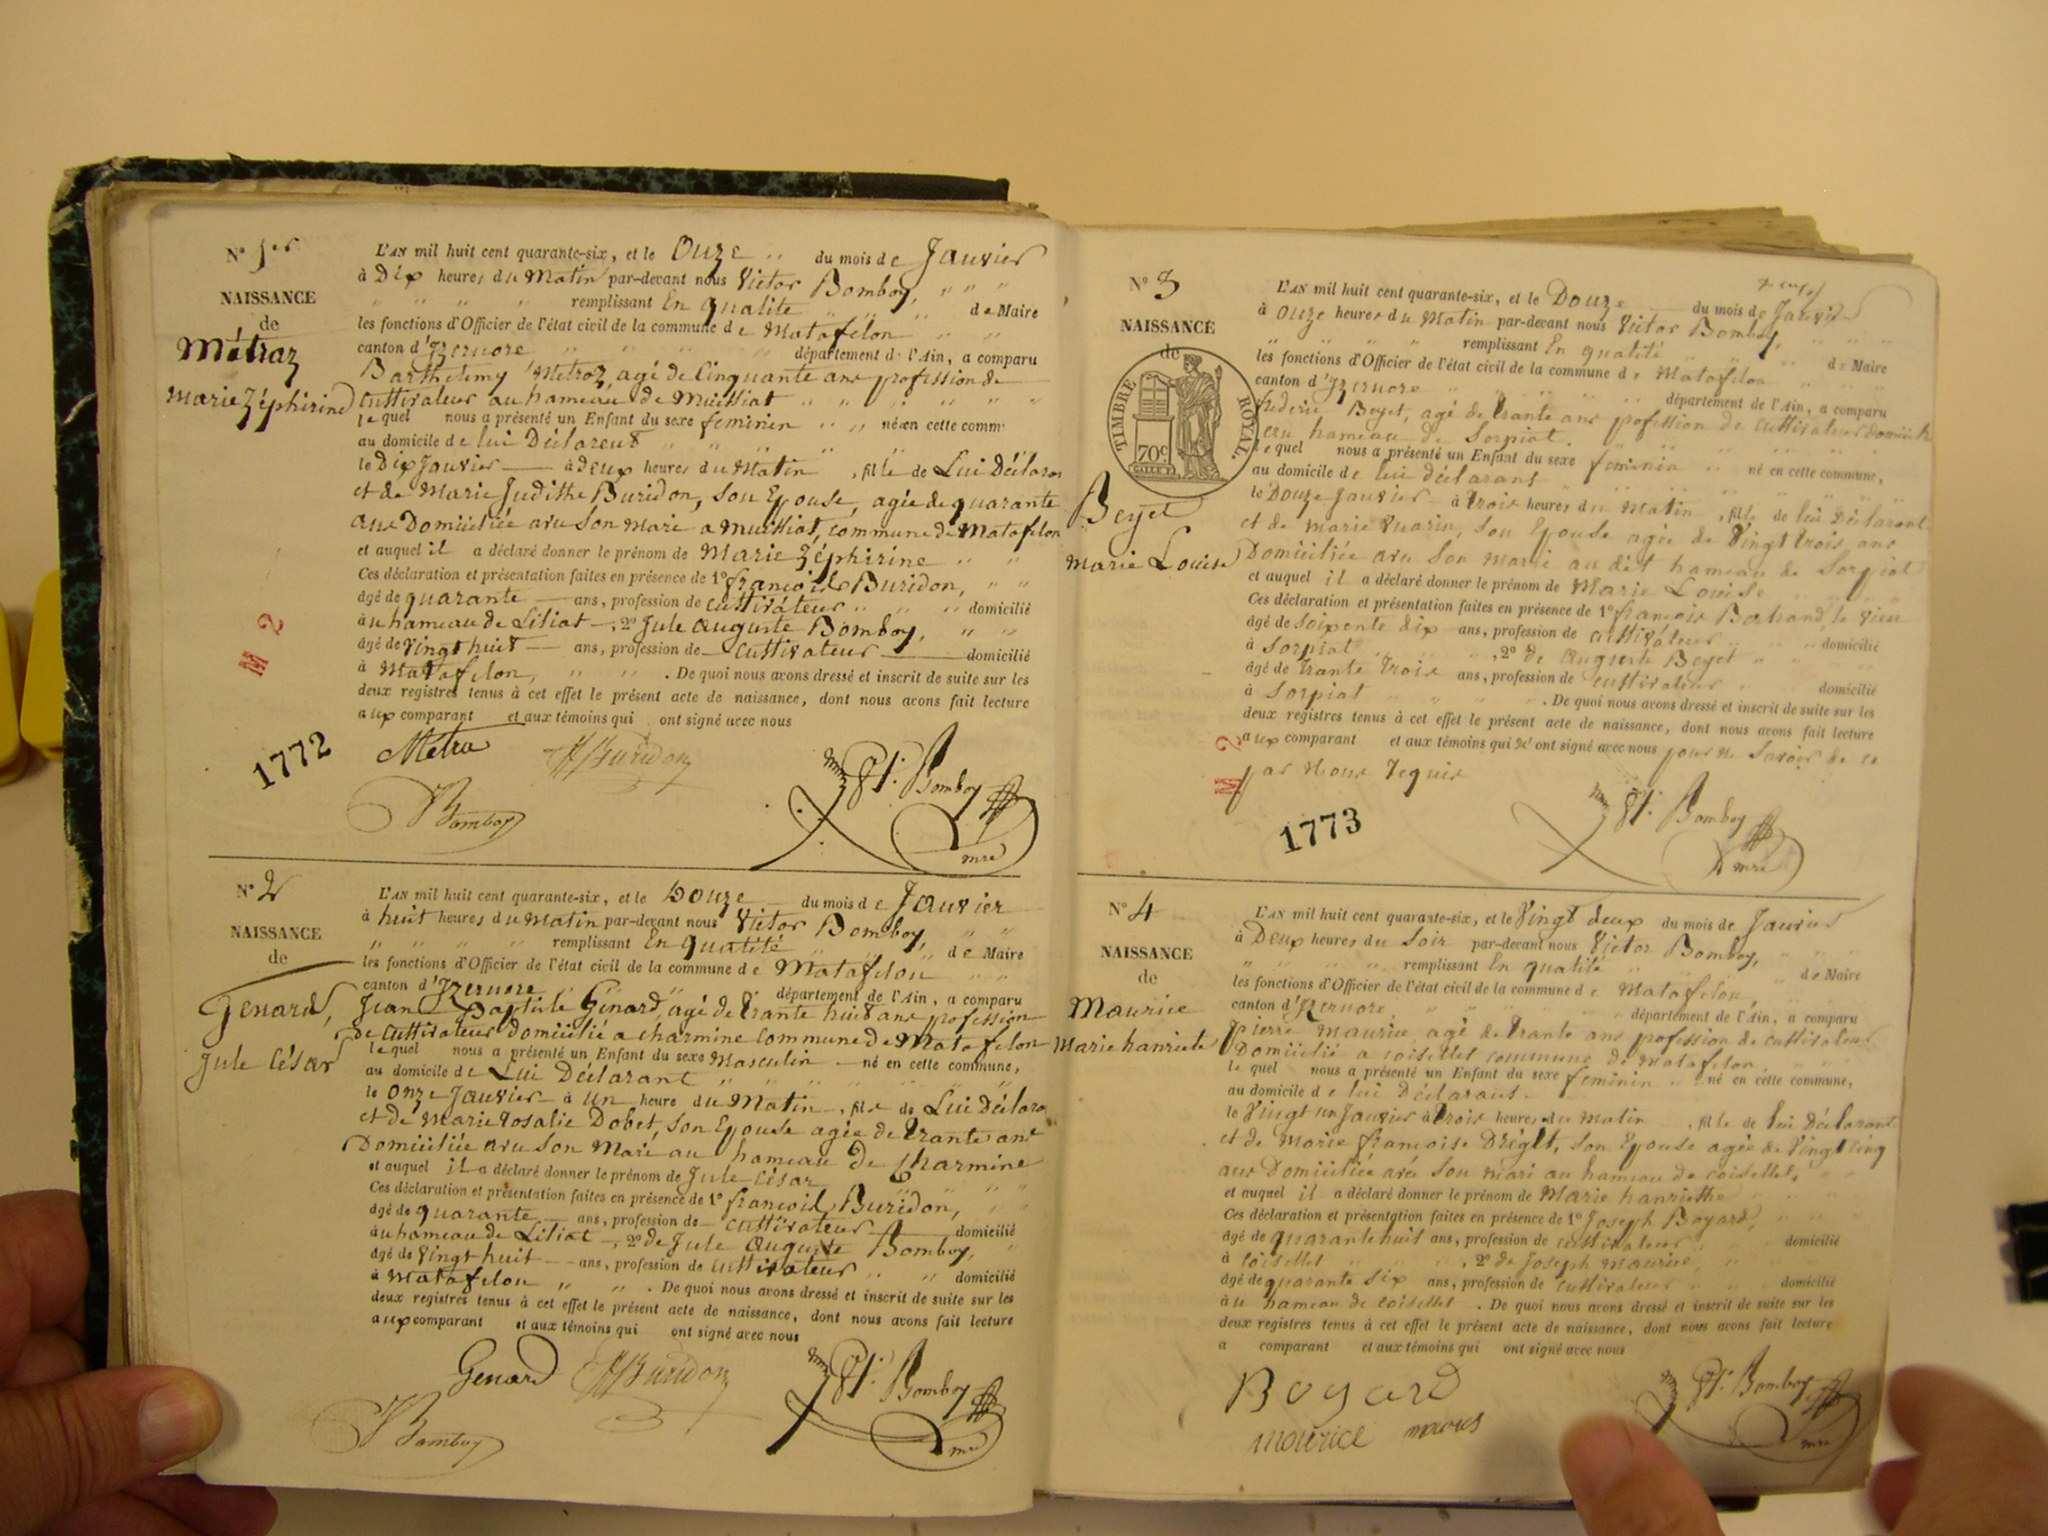 N° 1er
NAISSANCE
de
Métraz
Marie Zéphirine
L'AN mil huit cent quarante-six, et le Onze du mois de Janvier
à Dix heures du Matin par-devant nous Victor Bomboy,
remplissant En qualité de Maire
les fonctions d'Officier de l'état civil de la commune de Matafelon
canton d'Izernore département de l'Ain, a comparu
Barthélemy Métroz, agé de Cinquante ans profession de
Cultivateur au hameau de
le quel nous a présenté un Enfant du sexe feminin né en cette comm
au domicile de lui Déclarent
le Dix Janvier à Deux heures du Matin, fille de Lui Déclaran
et de Marie Judithe Buridon, son Epouse, agée de quarante
ans Domiciliée avec son mari a commune de Matafelon
et auquel il a déclaré donner le prénom de Marie Zéphirine
Ces déclaration et présentation faites en présence de 1° françois Buridon,
âgé de quarante ans, profession de cultivateur domicilié
à u hameau de Siliat, 2° Jule auguste Bomboy,
âgé de vingt huit ans, profession de cultivateur domicilié
à Matafelon, . De quoi nous avons dressé et inscrit de suite sur les
deux registres tenus à cet effet le présent acte de naissance, dont nous avons fait lecture
aux comparant et aux témoins qui ont signé avec nous
M 2
1772
Métra Buridon
Bomboy
Vt. Bomboy
mre
N° 2
NAISSANCE
de
Genard,
Jule César
L'AN mil huit cent quarante-six, et le Douze du mois de Janvier
à huit heures du Matin par-devant nous Victor Bomboy,
remplissant En qualité de Maire
les fonctions d'Officier de l'état civil de la commune de Matafelon
canton d'Izernore département de l'Ain, a comparu
Jean Baptiste Génard, agé de trante huit ans profession
de cultivateur Domicilié a charmine commune de Matafelon
le quel nous a présenté un Enfant du sexe Masculin né en cette commune,
au domicile de Lui Déclarant
le onze Janvier à un heure du Matin, fils de Lui Déclara
et de Marie rosalie Dobet, son Epouse agée de trante ans
Domiciliée avec son Mari au hameau de charmine
et auquel il a déclaré donner le prénom de Jule César
Ces déclaration et présentation faites en présence de 1° françois Buridon,
âgé de quarante ans, profession de cultivateur domicilié
à u hameau de Siliat, 2° de Jule auguste Bomboy,
âgé de vingt huit ans, profession de cultivateur domicilié
à Matafelon . De quoi nous avons dressé et inscrit de suite sur les
deux registres tenus à cet effet le présent acte de naissance, dont nous avons fait lecture
aux comparant et aux témoins qui ont signé avec nous
Genard Buridon
Bomboy
Vt. Bomboy
mre
N° 3
NAISSANCE
de
TIMBRE ROYAL.
70c
Beyet
Marie Louise
L'AN mil huit cent quarante-six, et le Douze du mois de Janvier
à onze heures du Matin par-devant nous Victor Bomboy,
remplissant En qualité de Maire
les fonctions d'Officier de l'état civil de la commune de Matafelon
canton d'Izernore département de l'Ain, a comparu
frederic Beyet, agé de trante ans profession de cultivateur domicilié
au hameau de Sorpiat.
le quel nous a présenté un Enfant du sexe feminin né en cette commune,
au domicile de lui déclarant
le Douze Janvier à trois heures du Matin, fille de lui déclarant
et de marie son Epouse agée de Vingt trois ans
Domiciliée avec son mari au dit hameau de Sorpiat
et auquel il a déclaré donner le prénom de Marie Louise
Ces déclaration et présentation faites en présence de 1° françois Bertrand, le vieu
âgé de soixente dix ans, profession de cultivateur domicilié
à Sorpiat, 2° de auguste Beyet
âgé de trante trois ans, profession de cultivateur domicilié
à Sorpiat . De quoi nous avons dressé et inscrit de suite sur les
deux registres tenus à cet effet le présent acte de naissance, dont nous avons fait lecture
aux comparant et aux témoins qui n' ont signé avec nous pour ne savoir de ce
par Nous requis
M 2
1773
Vt. Bomboy
mre
N° 4
NAISSANCE
de
Maurice
Marie hanriete
L'AN mil huit cent quarante-six, et le Vingt deux du mois de Janvier
à Deux heures du Soir par-devant nous Victor Bomboy,
remplissant En qualité de Maire
les fonctions d'Officier de l'état civil de la commune de Matafelon
canton d'Izernore, département de l'Ain, a comparu
Pierre Maurice agé de trante ans profession de cultivateur
Domicilié a coisellet commune de Matafelon,
le quel nous a présenté un Enfant du sexe feminin né en cette commune,
au domicile de lui Déclarant.
le Vingt un Janvier à trois heures du Matin, fille de lui déclarant
et de Marie françoise son Epouse agée de Vingt cinq
ans Domiciliée avec son mari au hameau de coisellet,
et auquel il a déclaré donner le prénom de Marie hanriethe
Ces déclaration et présentation faites en présence de 1° Joseph Bogard,
âgé de quarante huit ans, profession de cultivateur domicilié
à coisellet, 2° de Joseph Maurice,
âgé de quarante six ans, profession de cultivateur domicilié
à u hameau de coisellet . De quoi nous avons dressé et inscrit de suite sur les
deux registres tenus à cet effet le présent acte de naissance, dont nous avons fait lecture
a comparant et aux témoins qui ont signé avec nous
Bogard
mourice
Vt. Bomboy
mre